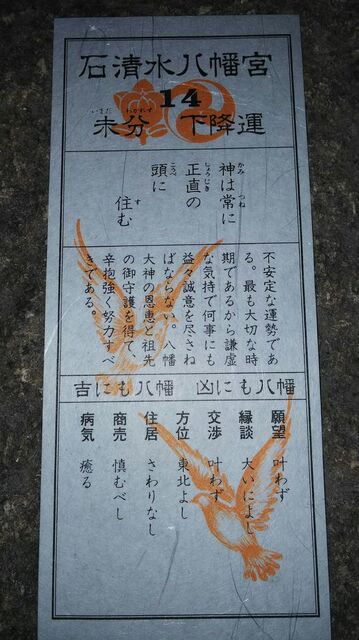 石清水八幡宮
14
いまだ わかれず
未分 下降運
神は常に
かみ つね
正直の
しょうじき
頭に
こうべ
住む
す
不安定な運勢であ
る。最も大切な時
期であるから謙虚
な気持で何事にも
益々誠意を尽さね
ばならない。八幡
大神の恩恵と祖先
の御守護を得て、
辛抱強く努力すべ
きである。
吉にも八幡 凶にも八幡
願望 叶わず
縁談 大いによし
交渉 叶わず
方位 東北よし
住居 さわりなし
商売 慎むべし
病気 癒る